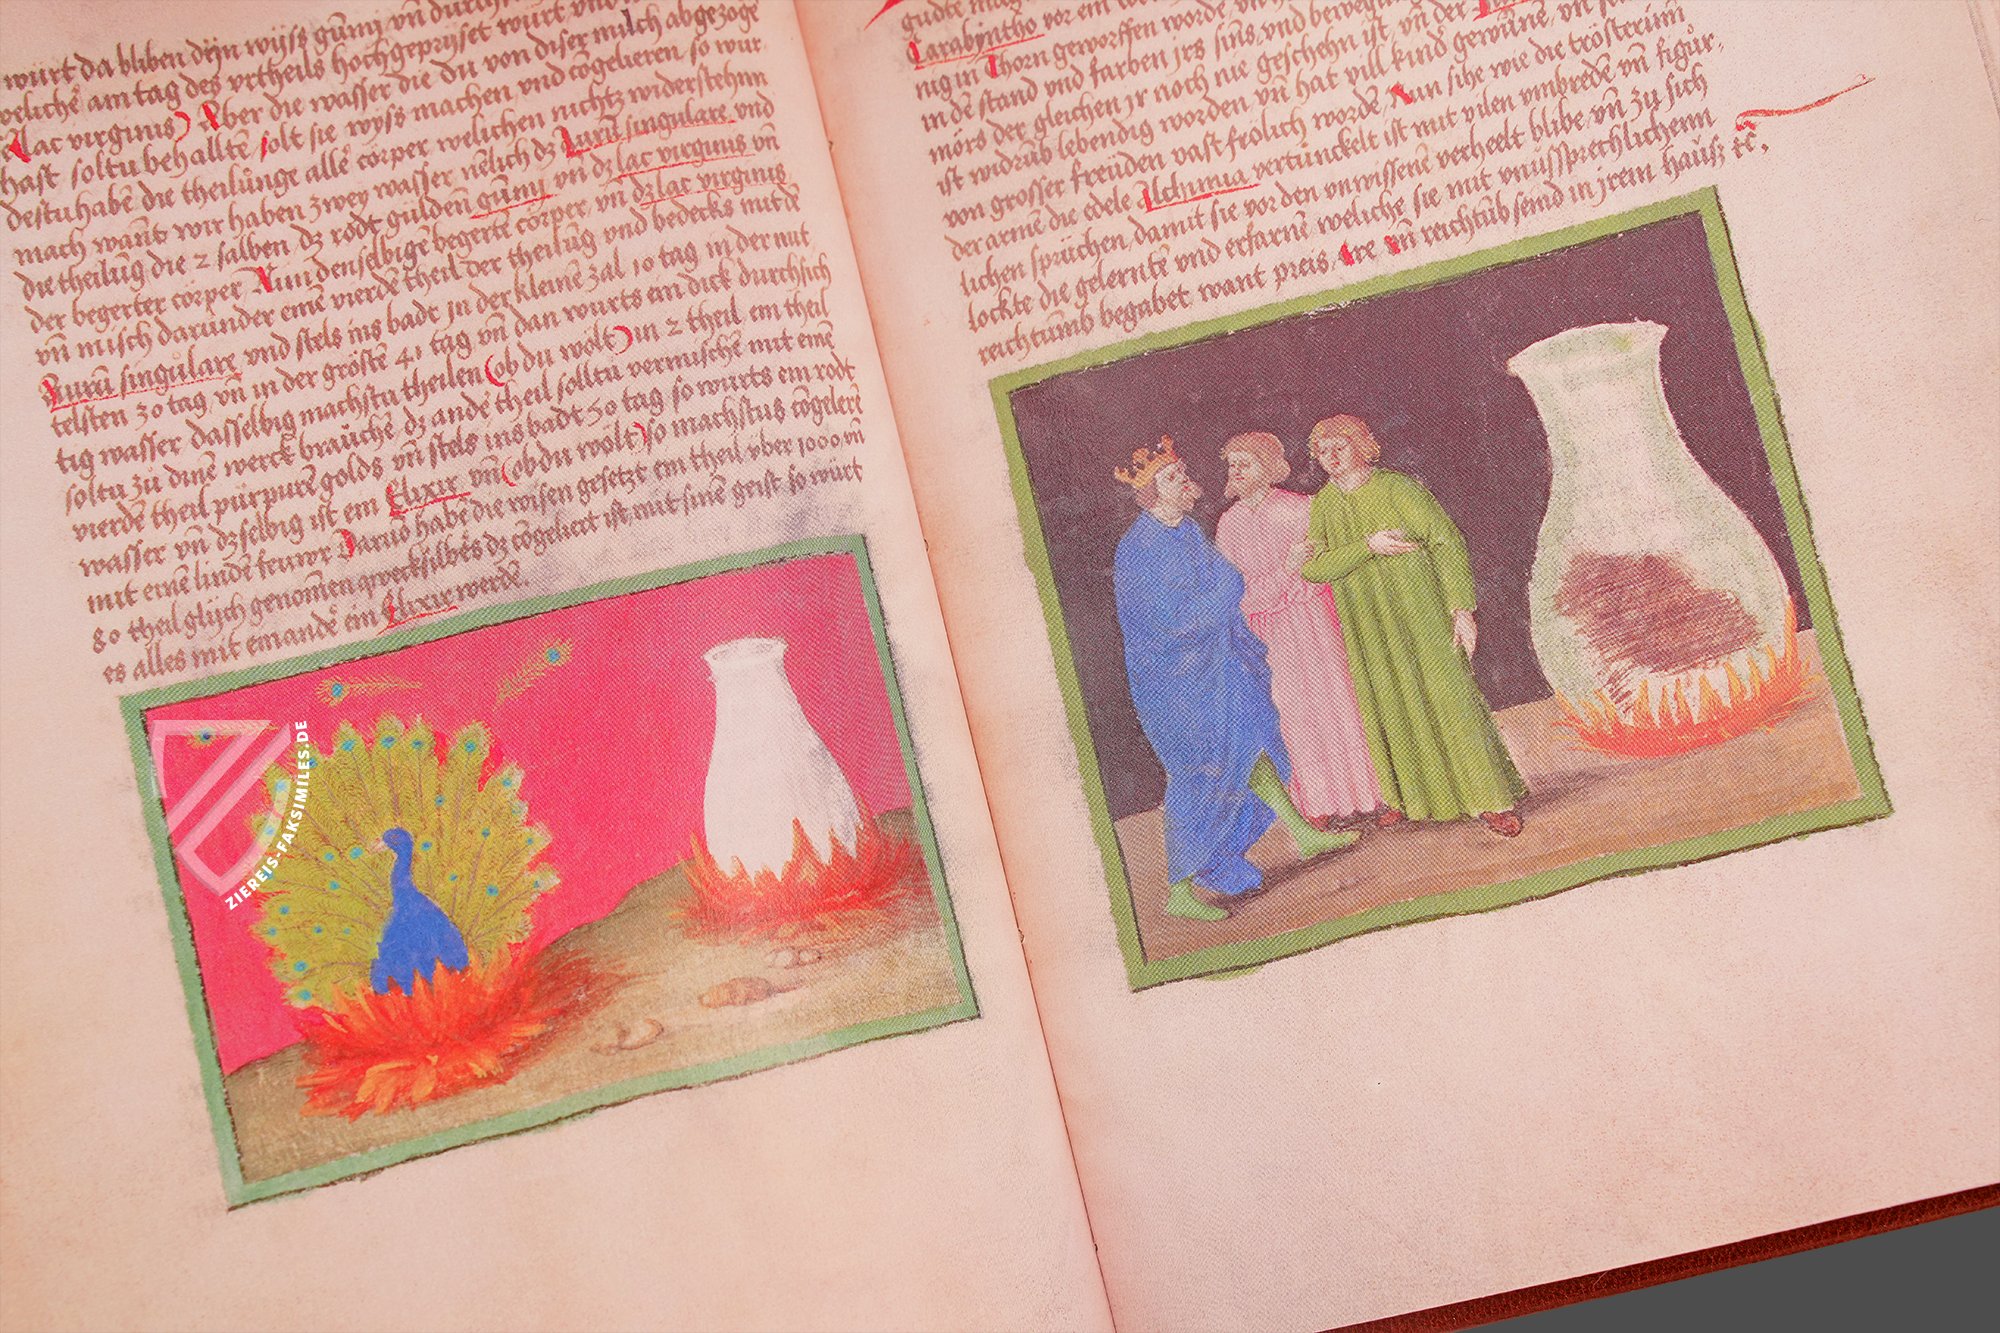 würt da bliben dÿn wÿss gūmÿ vn̄ durch
weliche am tag des vrtheils hochgeprÿset würt vnd
Lac virginis) Aber die wasser die du von diser milch abgezogē
hast soltu behalltē, solt sie wÿss machen vnd cōgelieren so wur
destu habē die theilunge allē cörper welichen nichtz widerstehnn
mach wan̄t wir haben zweÿ wasser nēlich dz Aurū singulare vnd
die theilūg die 2 salben dz rodt guldēn gūmÿ vn̄ dz lac virginis vn̄
der begerter cörper Nun denselbigē begertē cörper vn̄ dz lac virginis
vn̄ misch darunder einē vierdē theil der theilūg vnd bedecks mit dē
Aurū singulare vnd stels ins badt in der kleinē zal 10 tag in der mit
telsten 30 tag vn̄ in der gröstē 41 tag vn̄ dan wurts ein dick durchsich
tig wasser dasselbig machstu theilen (ob du wölt) in 2 theil ein theil
soltu zů dinē werck brauchē dz andē theil solltu vermischē mit einē
vierdē theil pürpurē golds vn̄ stels ins badt 50 tag so wurts ein rodt
wasser vn̄ dzselbig ist ein Elixir vn̄ (ob du wölt) so machstus cōgelerē
mit einē lindē feuwr Daruō habē die wisen gesetzt ein theil ÿber 1000 vn̄
80 theil glÿch genom̄en qwecksilbēs dz cōgeliert ist mit sinē geist so würt
es alles mit einandē ein Elixir werdē.
ZIEREIS-FAKSIMILES.DE
Larabÿntho vor ein
nig in Thorn geworffen wordē vn̄
in dē stand vnd farben jrs sins vnd beweg
mörs der gleichen jr noch nie geschehn ist, vn̄ der
ist widrūb lebendig worden vn̄ hat vill kind gewūnē, vn̄
von grosser freüden vast frölich wordē Nun sihe wie die tröstreim
der armē die edele Alchimia vertunckelt ist mit vilen vmbredē vn̄ figür
lichen sprüchen, damit sie vor den vnwissenē verheelt blibe vn̄ zů sich
lockte die gelerntē vnd erfarnē weliche sie mit vnussprechlichenn
reichtumb begabet want preis Ere vn̄ reichtūb seind in jrem hauß ꝛc̄.